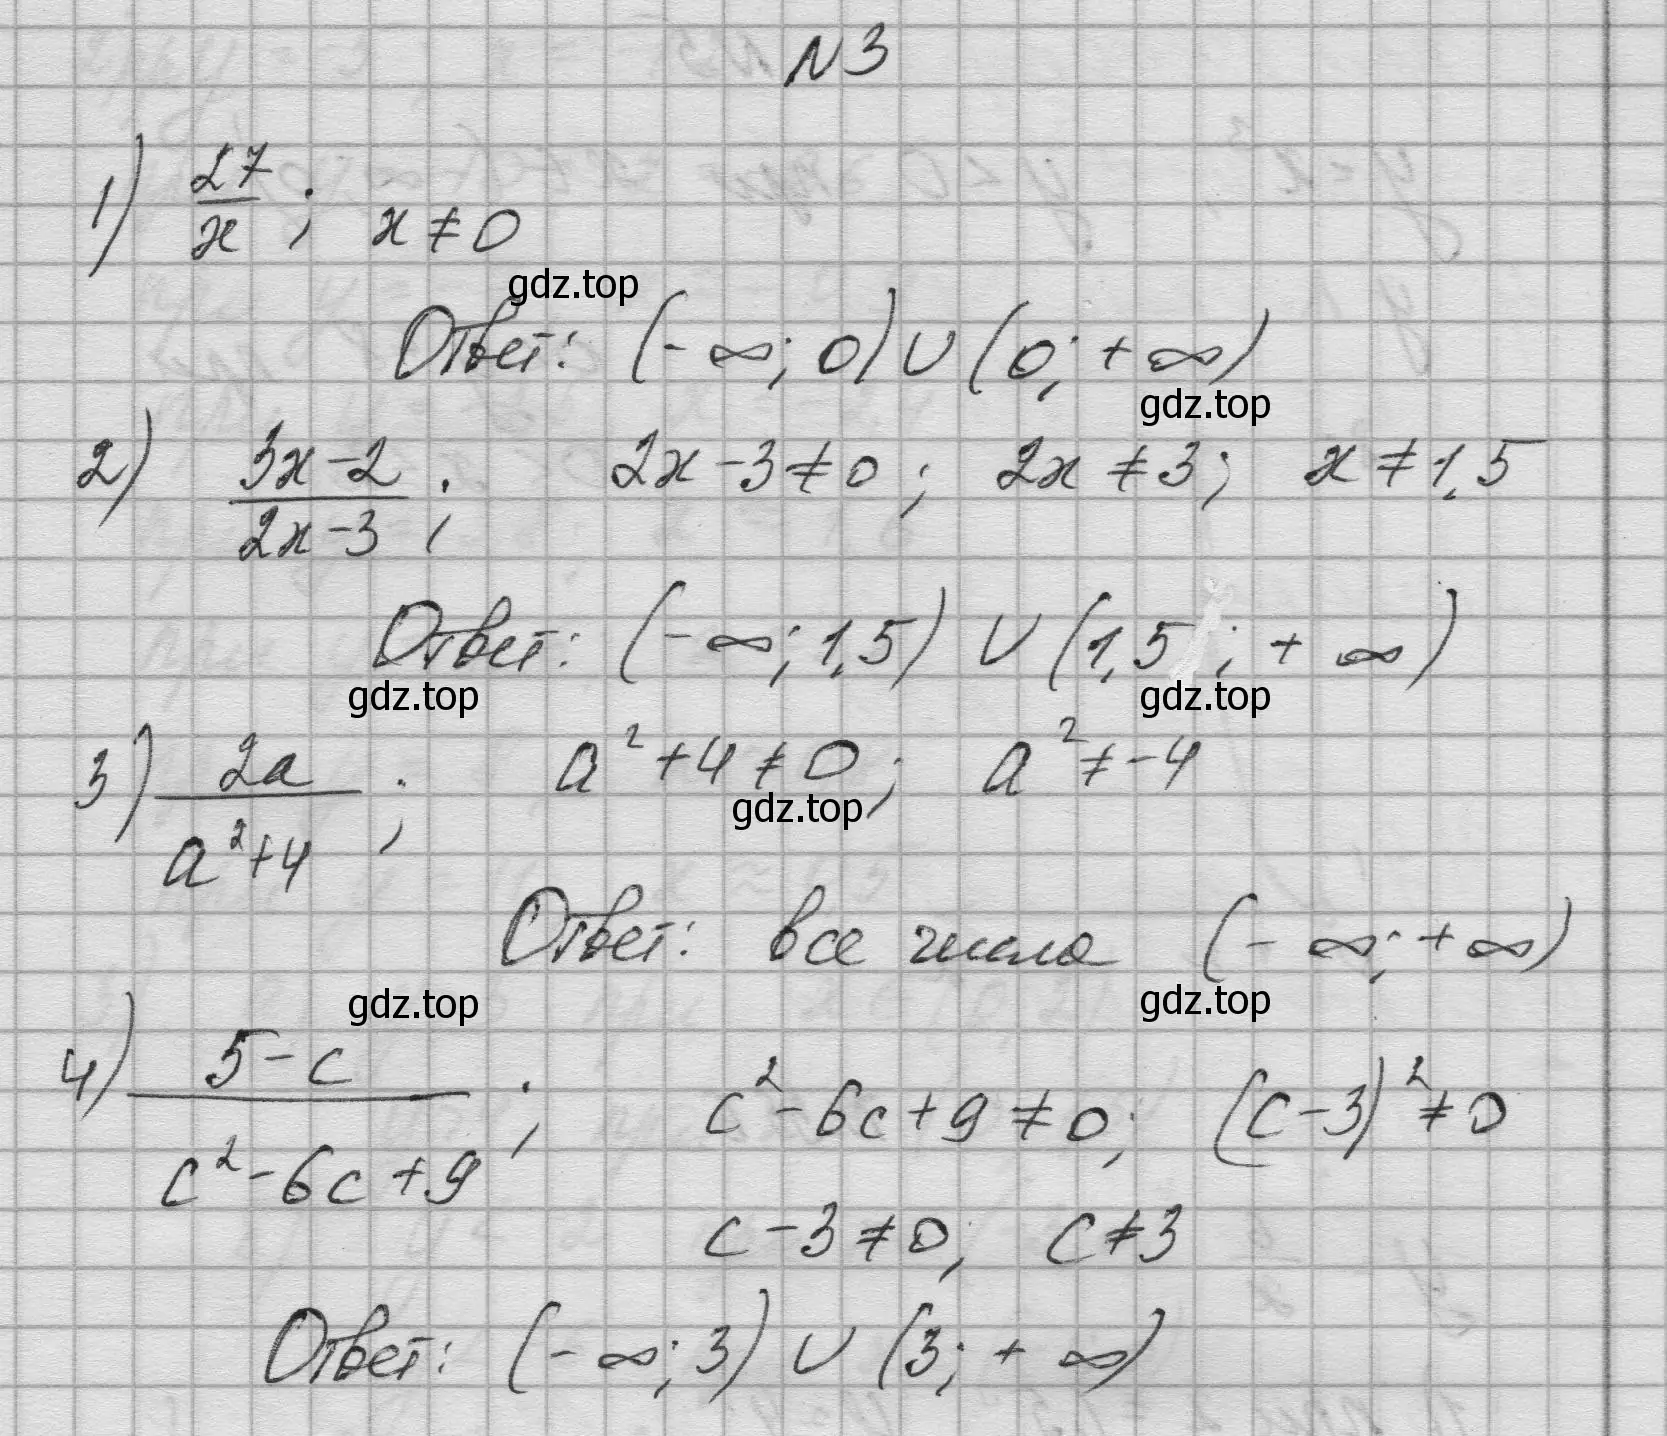 N3
1) 27/x ; x ≠ 0
gdz.top
Ответ: (-∞; 0) ∪ (0; +∞)
gdz.top
2) 3x-2/2x-3 ; 2x-3≠0; 2x≠3; x≠1,5
Ответ: (-∞; 1,5) ∪ (1,5; +∞)
gdz.top gdz.top
3) 2a/a²+4 ; a²+4≠0; a²≠-4
gdz.top
Ответ: все числа (-∞; +∞)
gdz.top gdz.top
4) 5-c/c²-6c+9 ; c²-6c+9≠0; (c-3)²≠0
c-3≠0; c≠3
Ответ: (-∞; 3) ∪ (3; +∞)